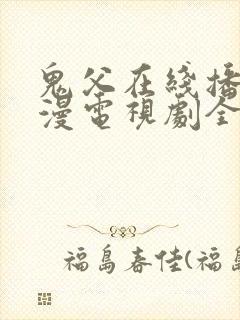 鬼父在綫播
漫電視劇全
福島春佳(福島